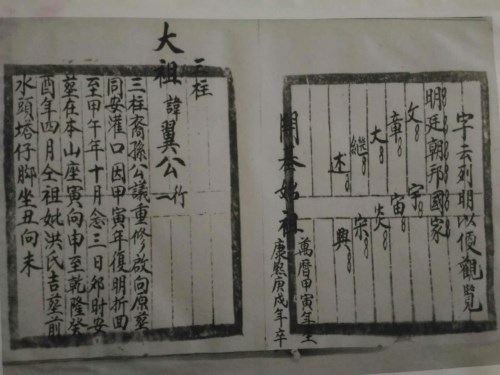 字云列明以便觀覽
明廷朝邦國家
文 宇
章 宙
大 炎
繼 宗
述 興
開基始祖
萬曆甲寅年生
康熙庚戌年卒
三柱
大祖諱翼公行一
三柱裔孫公議重修改向原葬
同安灌口因甲寅年復明折回
至甲午年十月念三日卯時安
葬在本山座寅向申至乾隆癸
酉年四月仝祖妣洪氏吉葬前
水頭塔仔脚坐丑向未